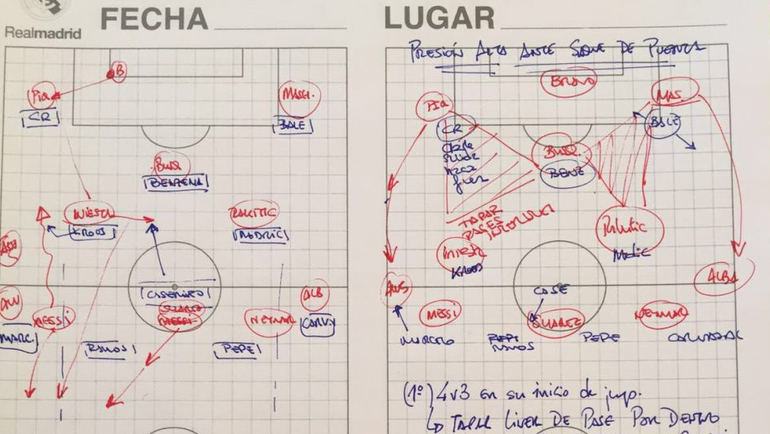 Realmadrid
FECHA
B
Piq
CR
MASH.
BALE
BUSQ
BENZEMA
INIESTA
KROOS
RAKITIC
MODRIC
CASEMIRO
MESSI
NEYMAR
ALB
CARV
MARC
RAMOS
PEPE
LUGAR
PRESIÓN ALTA ANTE SAQUE DE PUERTA
BRAVO
PIQ
MAS.
CR
BALE
BUSQ
BENZ
TAPAR
PASES
INTERIORES
Iniest
KROOS
Rakitic
Modric
ALBA
CASE
MESSI
SUAREZ
NEYMAR
MARCELO
RAMOS
PEPE
CARVAJAL
(1º) 4v3 en su inicio de jug.
TAPAR LINEA DE PASE POR DENTRO